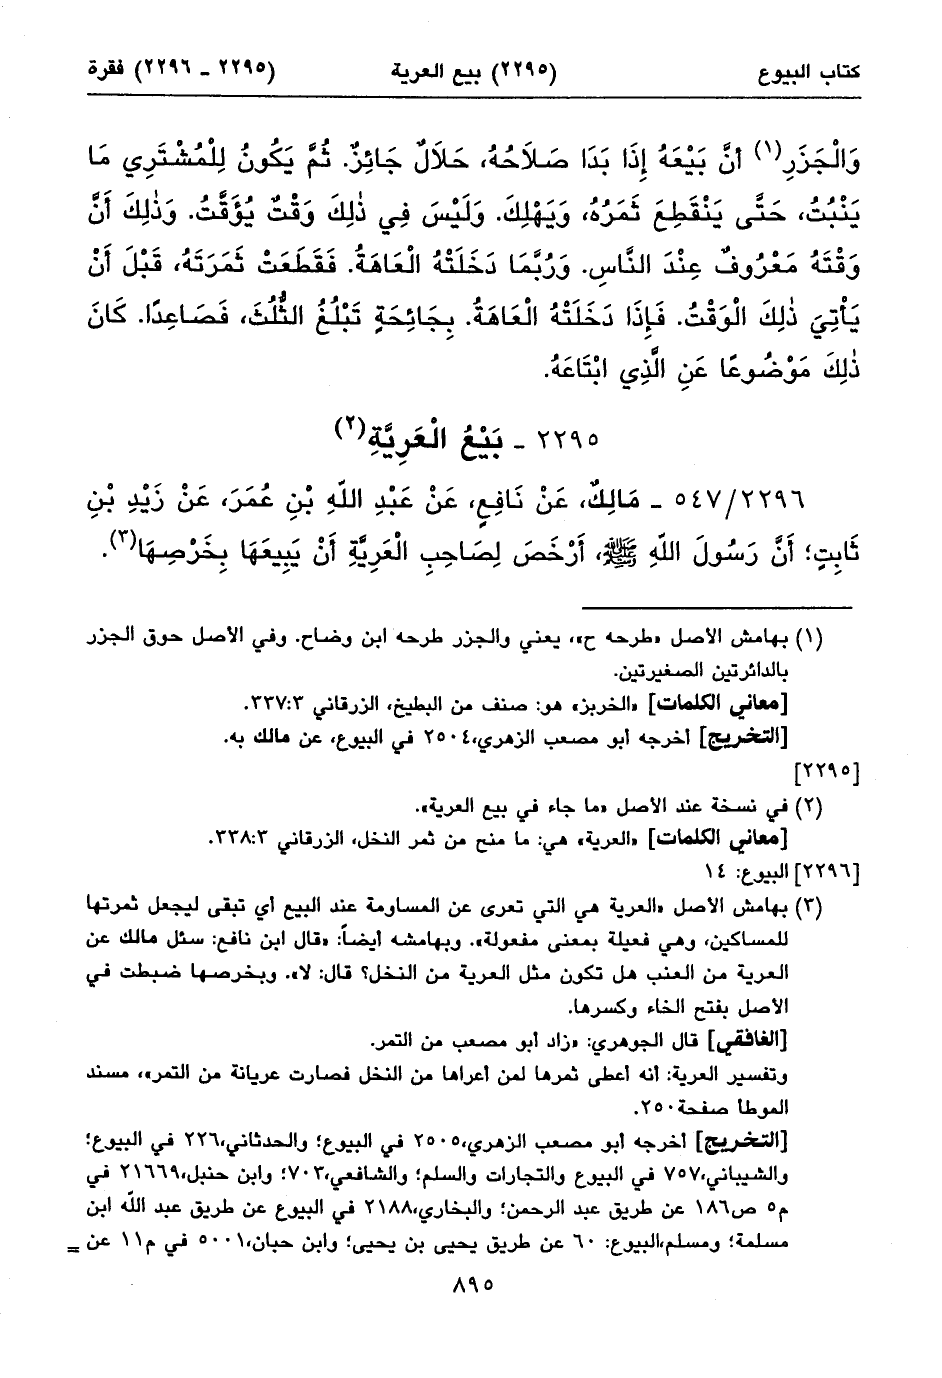 كتاب البيوع (٢٢٩٥) بيع العرية (٢٢٩٥ - ٢٢٩٦) فقرة
وَالْجَزَرِ(١) أَنَّ بَيْعَهُ إِذَا بَدَا صَلَاحُهُ، حَلَالٌ جَائِزٌ. ثُمَّ يَكُونُ لِلْمُشْتَرِي مَا
يَنْبُتُ، حَتَّى يَنْقَطِعَ ثَمَرُهُ، وَيَهْلِكَ. وَلَيْسَ فِي ذٰلِكَ وَقْتٌ يُؤَقَّتُ. وَذٰلِكَ أَنَّ
وَقْتَهُ مَعْرُوفٌ عِنْدَ النَّاسِ. وَرُبَّمَا دَخَلَتْهُ الْعَاهَةُ. فَقَطَعَتْ ثَمَرَتَهُ، قَبْلَ أَنْ
يَأْتِيَ ذٰلِكَ الْوَقْتُ. فَإِذَا دَخَلَتْهُ الْعَاهَةُ. بِجَائِحَةٍ تَبْلُغُ الثُّلُثَ، فَصَاعِدًا. كَانَ
ذٰلِكَ مَوْضُوعًا عَنِ الَّذِي ابْتَاعَهُ.
٢٢٩٥ - بَيْعُ الْعَرِيَّةِ(٢)
٥٤٧/٢٢٩٦ - مَالِكٌ، عَنْ نَافِعٍ، عَنْ عَبْدِ اللّٰهِ بْنِ عُمَرَ، عَنْ زَيْدِ بْنِ
ثَابِتٍ؛ أَنَّ رَسُولَ اللّٰهِ ﷺ، أَرْخَصَ لِصَاحِبِ الْعَرِيَّةِ أَنْ يَبِيعَهَا بِخَرْصِهَا(٣).
(١) بهامش الأصل «طرحه ح»، يعني والجزر طرحه ابن وضاح. وفي الأصل حوق الجزر
بالدائرتين الصغيرتين.
[معاني الكلمات] «الخربز» هو: صنف من البطيخ، الزرقاني ٣٣٧:٣.
[التخريج] أخرجه أبو مصعب الزهري،٢٥٠٤ في البيوع، عن مالك به.
[٢٢٩٥]
(٢) في نسخة عند الأصل «ما جاء في بيع العرية».
[معاني الكلمات] «العرية» هي: ما منح من ثمر النخل، الزرقاني ٣٣٨:٣.
[٢٢٩٦] البيوع: ١٤
(٣) بهامش الأصل «العرية هي التي تعرى عن المساومة عند البيع أي تبقى ليجعل ثمرتها
للمساكين، وهي فعيلة بمعنى مفعولة». وبهامشه أيضاً: «قال ابن نافع: سئل مالك عن
العرية من العنب هل تكون مثل العرية من النخل؟ قال: لا». وبخرصها ضبطت في
الأصل بفتح الخاء وكسرها.
[الغافقي] قال الجوهري: «زاد أبو مصعب من التمر.
وتفسير العرية: أنه أعطى ثمرها لمن أعراها من النخل فصارت عريانة من التمر»، مسند
الموطأ صفحة٢٥٠.
[التخريج] أخرجه أبو مصعب الزهري،٢٥٠٥ في البيوع؛ والحدثاني،٢٢٦ في البيوع؛
والشيباني،٧٥٧ في البيوع والتجارات والسلم؛ والشافعي،٧٠٣؛ وابن حنبل،٢١٦٦٩ في
م٥ ص١٨٦ عن طريق عبد الرحمن؛ والبخاري،٢١٨٨ في البيوع عن طريق عبد اللّٰه ابن
مسلمة؛ ومسلم،البيوع: ٦٠ عن طريق يحيى بن يحيى؛ وابن حبان،٥٠٠١ في م١١ عن =
٨٩٥